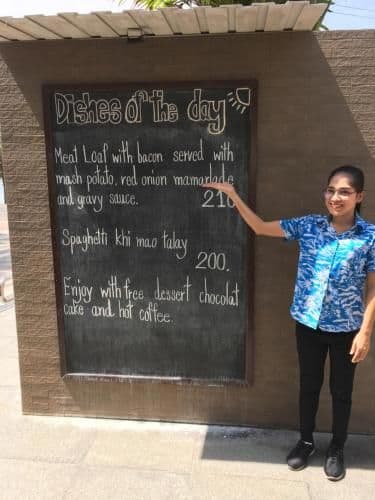 Dishes of the day
Meat Loaf with bacon served with
mash potato, red onion mamarlade
and gravy sauce. 210
Spaghetti khi mao talay
200.
Enjoy with free dessert chocolat
cake and hot coffee.